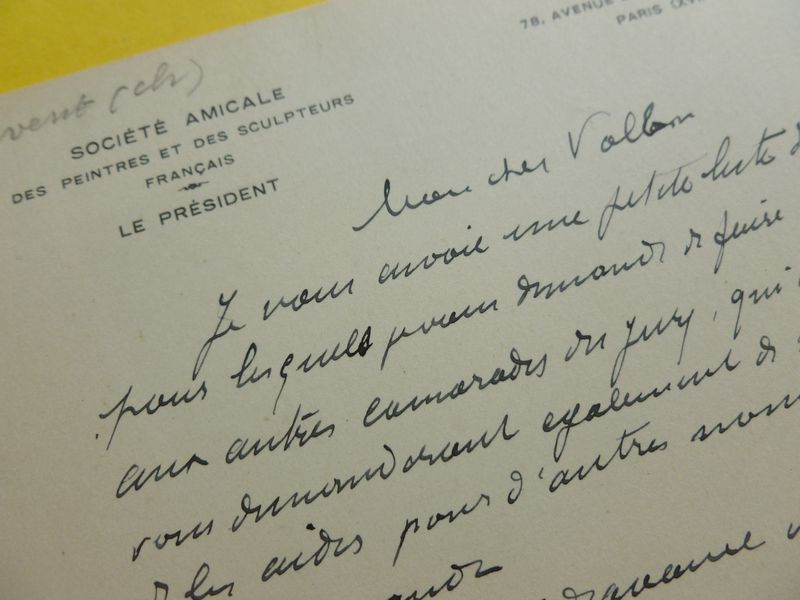 78, AVENUE
PARIS (XV
vent (ch)
SOCIÉTÉ AMICALE
DES PEINTRES ET DES SCULPTEURS
FRANÇAIS
LE PRÉSIDENT
Mon cher
Je vous envoie une petite liste
pour lesquels vous demande de faire
aux autres camarades du jury, qui
vous demanderont également de
les aider pour d'autres noms
d'avance